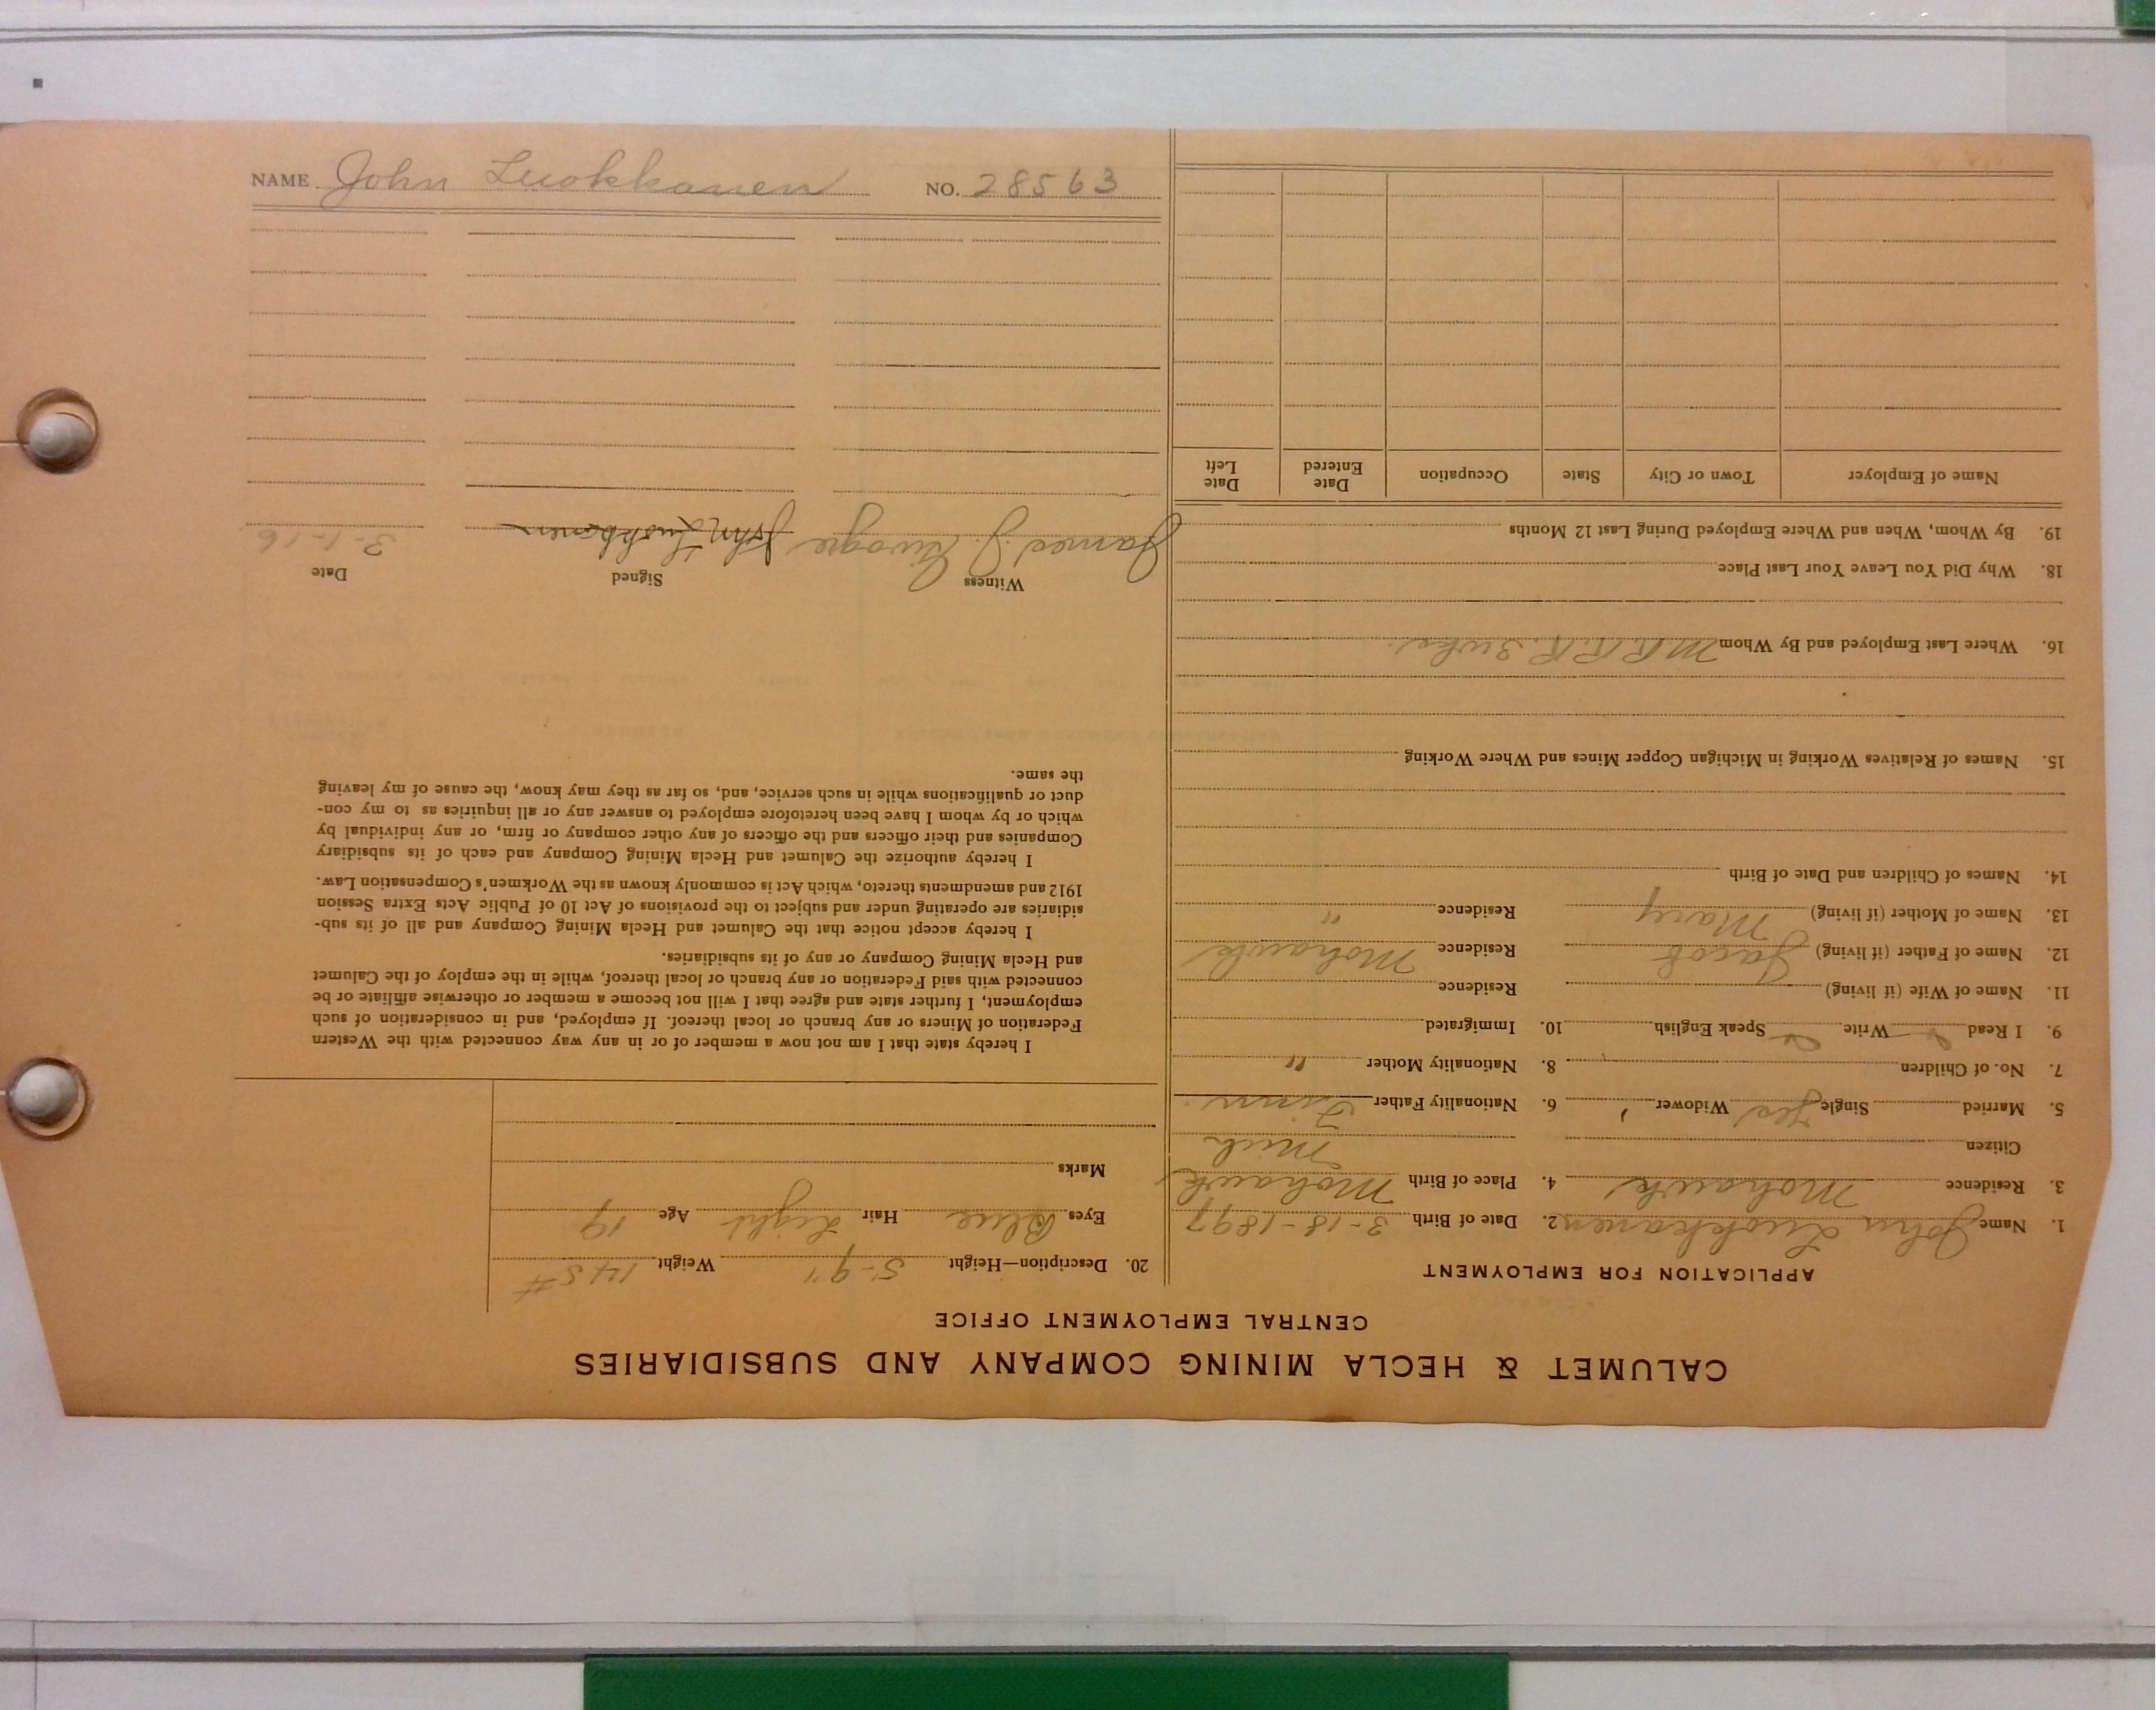 CALUMET & HECLA MINING COMPANY AND SUBSIDIARIES
CENTRAL EMPLOYMENT OFFICE
APPLICATION FOR EMPLOYMENT
1. Name John Luokkanen 2. Date of Birth 3-18-1897
3. Residence Mohawk 4. Place of Birth Mohawk
Citizen Mich
5. Married Single Yes Widower 6. Nationality Father Finn.
7. No. of Children 8. Nationality Mother "
9. I Read Write Speak English 10. Immigrated
11. Name of Wife (if living) Residence
12. Name of Father (if living) Jacob Residence Mohawk
13. Name of Mother (if living) Mary Residence "
14. Names of Children and Date of Birth
15. Names of Relatives Working in Michigan Copper Mines and Where Working
16. Where Last Employed and By Whom
18. Why Did You Leave Your Last Place
19. By Whom, When and Where Employed During Last 12 Months
Name of Employer Town or City State Occupation Date Entered Date Left
20. Description—Height 5-9" Weight 145#
Eyes Blue Hair Light Age 19
Marks
I hereby state that I am not now a member of or in any way connected with the Western
Federation of Miners or any branch or local thereof. If employed, and in consideration of such
employment, I further state and agree that I will not become a member or otherwise affiliate or be
connected with said Federation or any branch or local thereof, while in the employ of the Calumet
and Hecla Mining Company or any of its subsidiaries.
I hereby accept notice that the Calumet and Hecla Mining Company and all of its sub-
sidiaries are operating under and subject to the provisions of Act 10 of Public Acts Extra Session
1912 and amendments thereto, which Act is commonly known as the Workmen's Compensation Law.
I hereby authorize the Calumet and Hecla Mining Company and each of its subsidiary
Companies and their officers and the officers of any other company or firm, or any individual by
which or by whom I have been heretofore employed to answer any or all inquiries as to my con-
duct or qualifications while in such service, and, so far as they may know, the cause of my leaving
the same.
Witness Signed Date
James J. John Luokkanen 3-1-16
NAME John Luokkanen NO. 28563